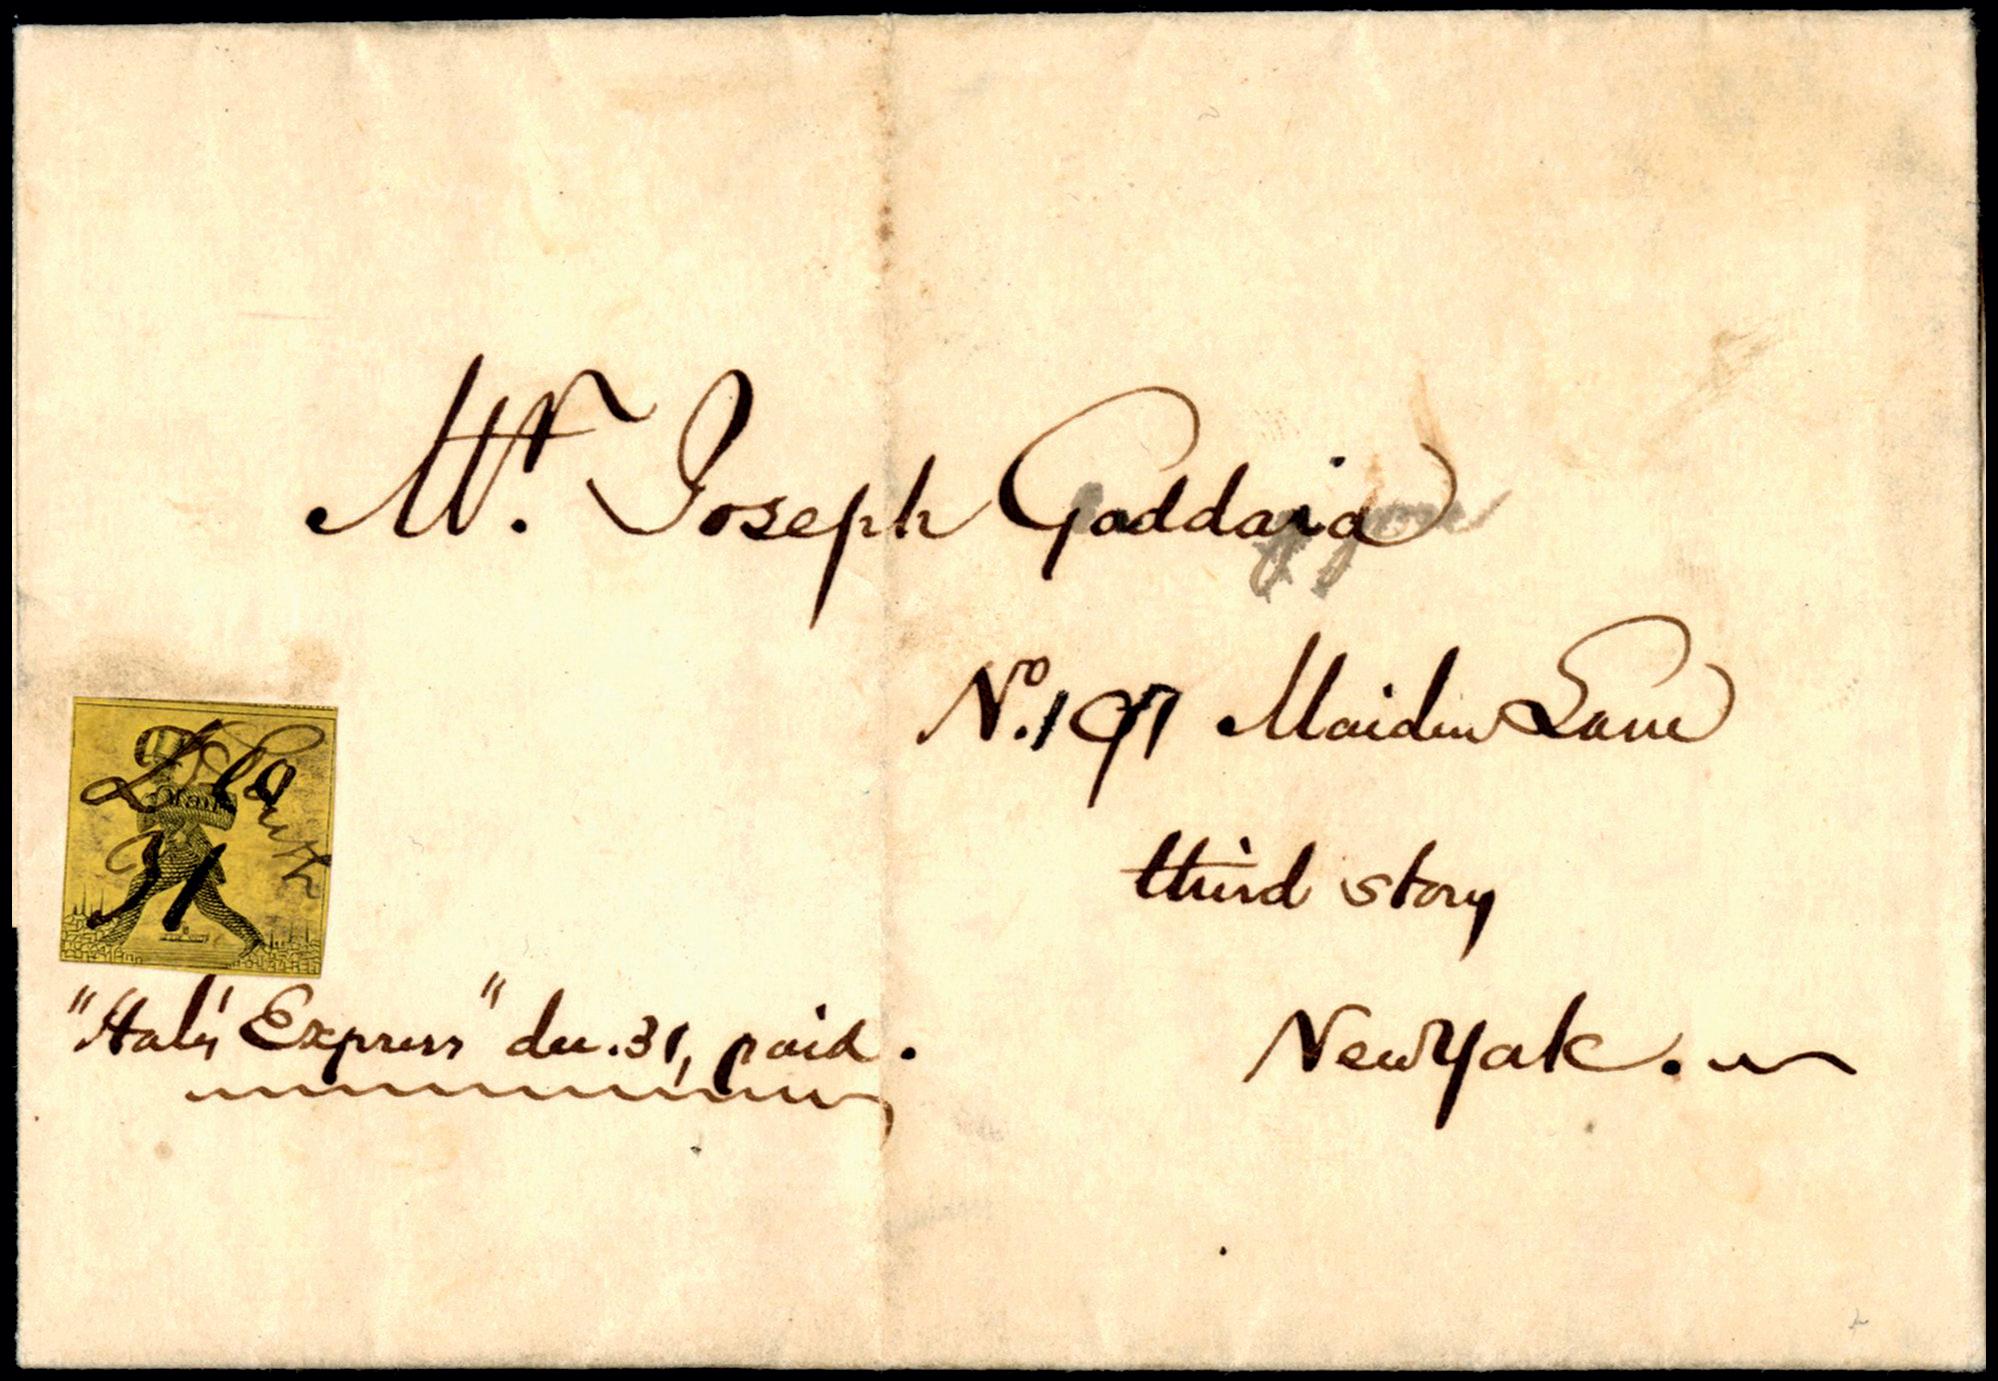 Mr. Joseph Goddard
No. 197 Maiden Lane
third story
New York.
31
"Hale's Express" du. 31, paid.